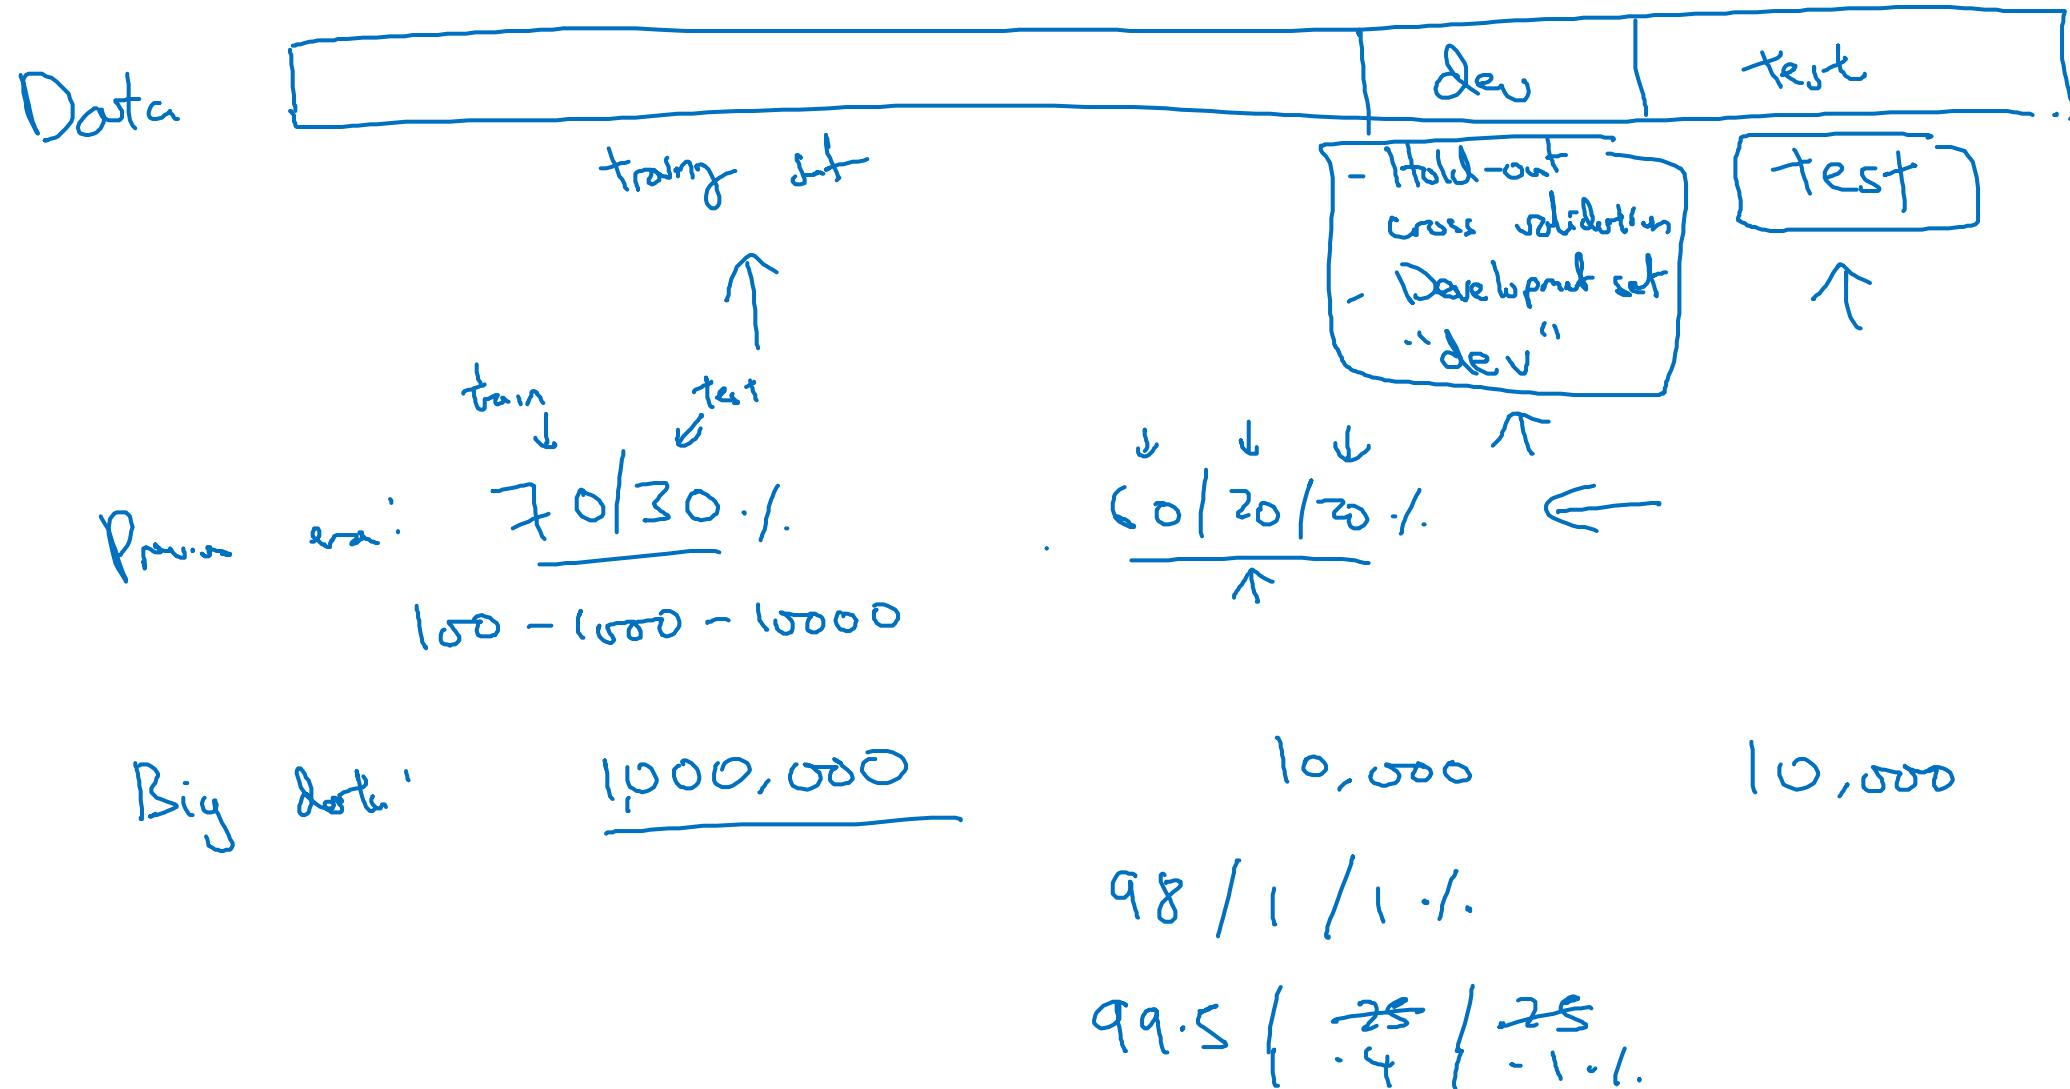 Data
dev
test
traing set
- Hold-out
cross validation
- Developmt set
"dev"
test
train
test
Previous era:
70/30 %
60/20/20 %
100 - 1000 - 10000
Big data:
1,000,000
10,000
10,000
98 / 1 / 1 %
99.5 / .25 / .25
.4 / .1 %